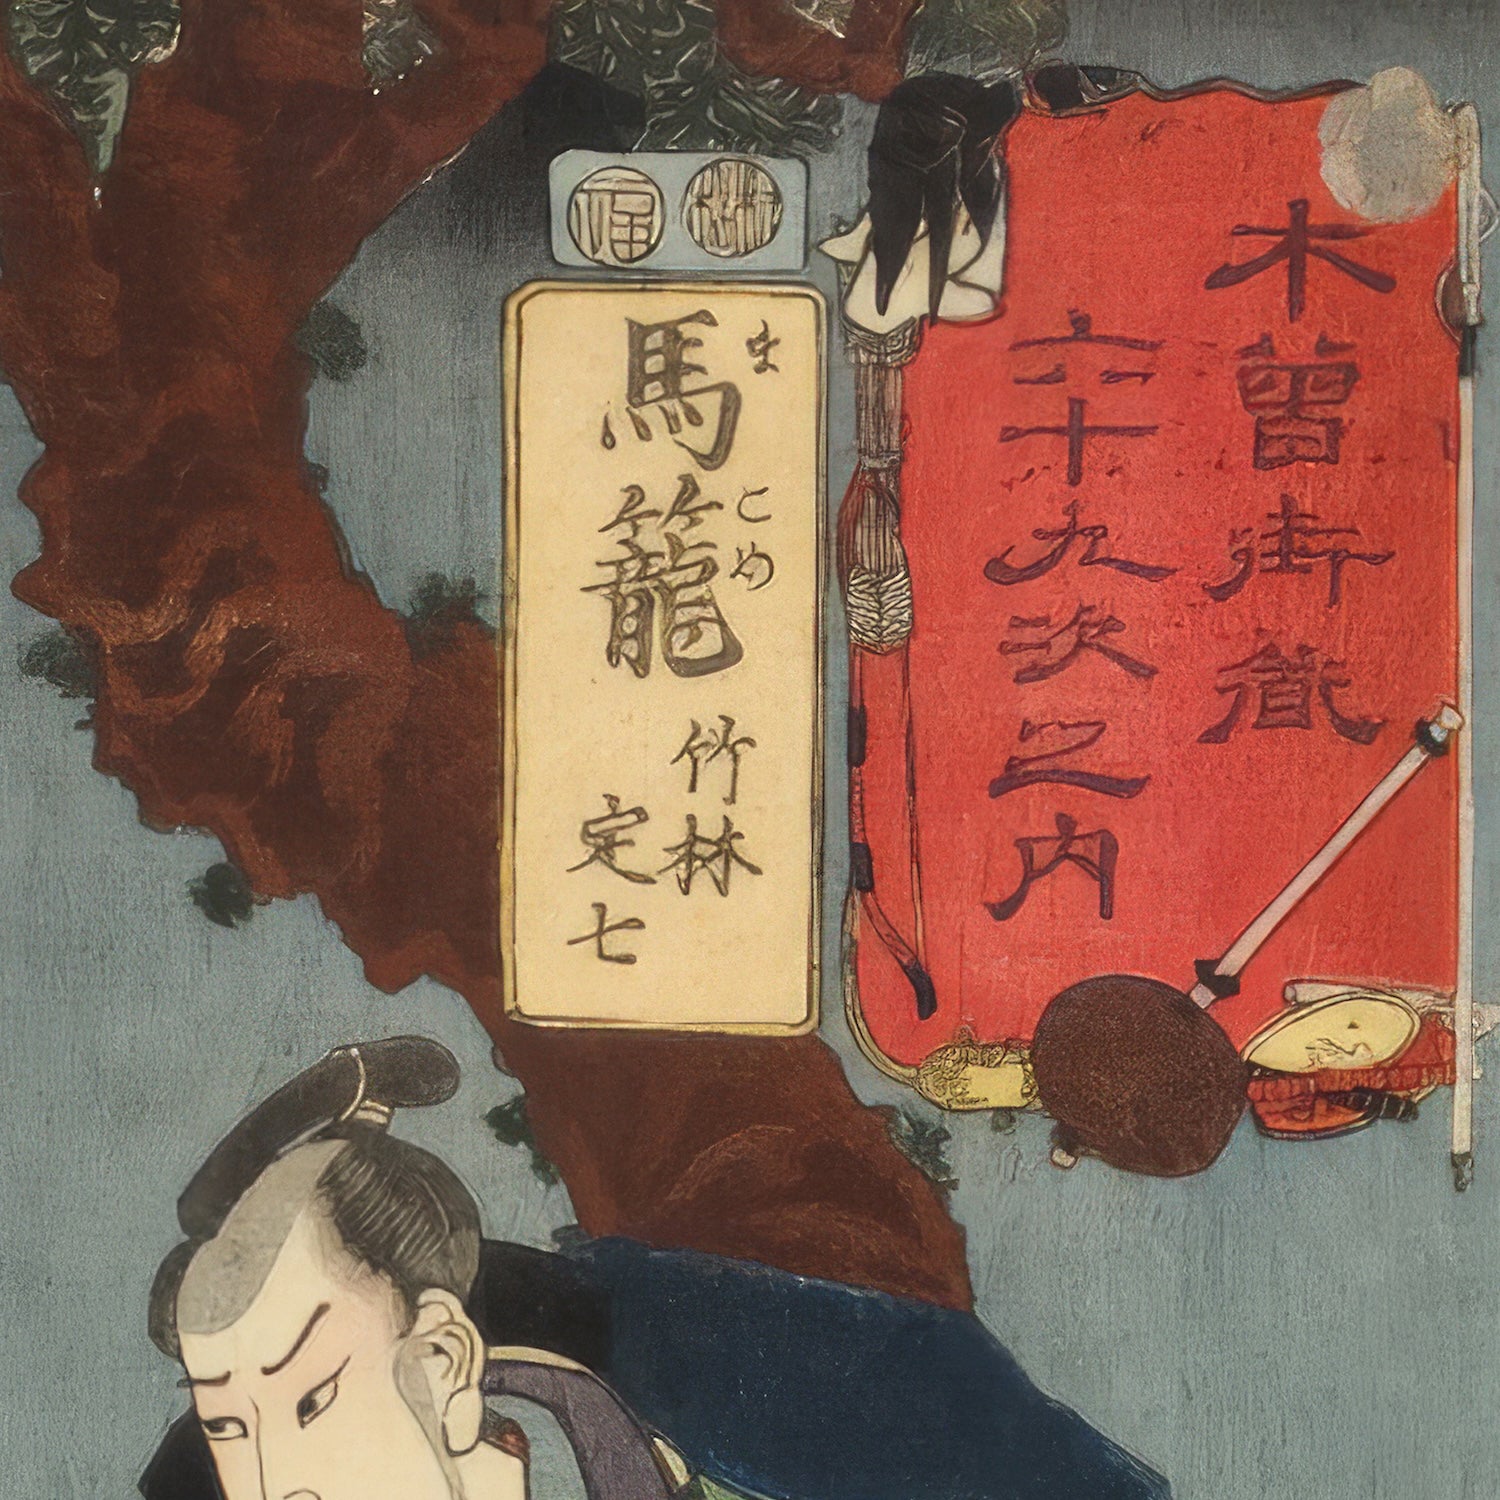 木曾街道
六十九次之内
福
馬籠
まこめ
竹林
定七